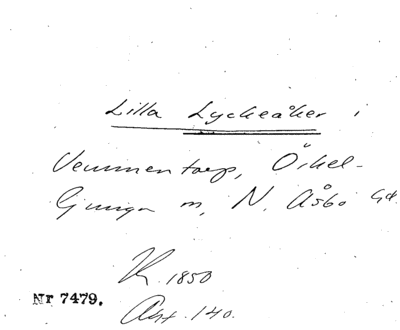 Lilla Lyckeåker i
Vemmentorp, Örkel-
ljunga m, N. Åsbo hd.
K 1850
Akt. 140.
Nr 7479.